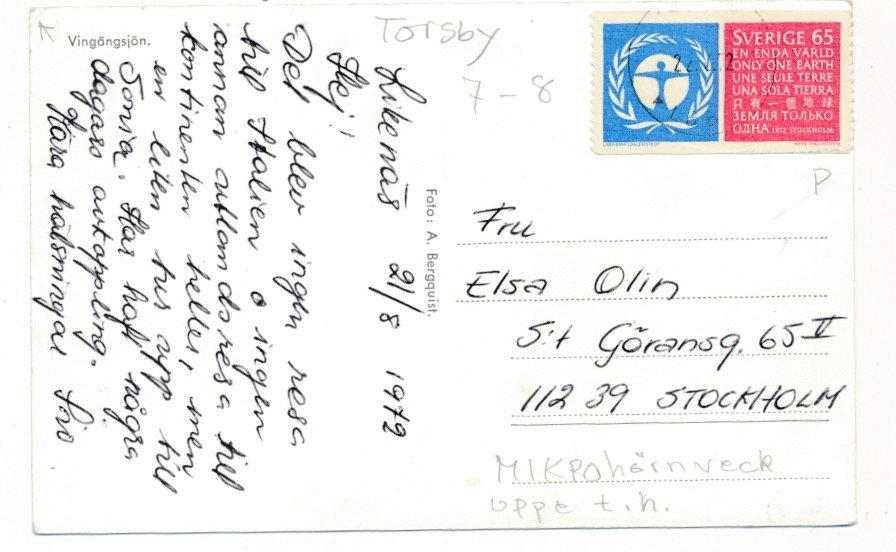 Vingängsjön.
Torsby
7-8
Likenäs 21/8 1972
Hej!
Det blev ingen resa
till Italien o ingen
annan utlandsresa till
kontinenten heller, men
en liten tur upp till
Sonia. Har haft några
dagars avkoppling.
Kära hälsningar Siv
Foto: A. Bergquist.
SVERIGE 65
EN ENDA VÄRLD
ONLY ONE EARTH
UNE SEULE TERRE
UNA SOLA TIERRA
只有一個地球
ЗЕМЛЯ ТОЛЬКО
ОДНА 1972 STOCKHOLM
P
Fru
Elsa Olin
S:t Göransg. 65 II
112 39 STOCKHOLM
uppe t.h.